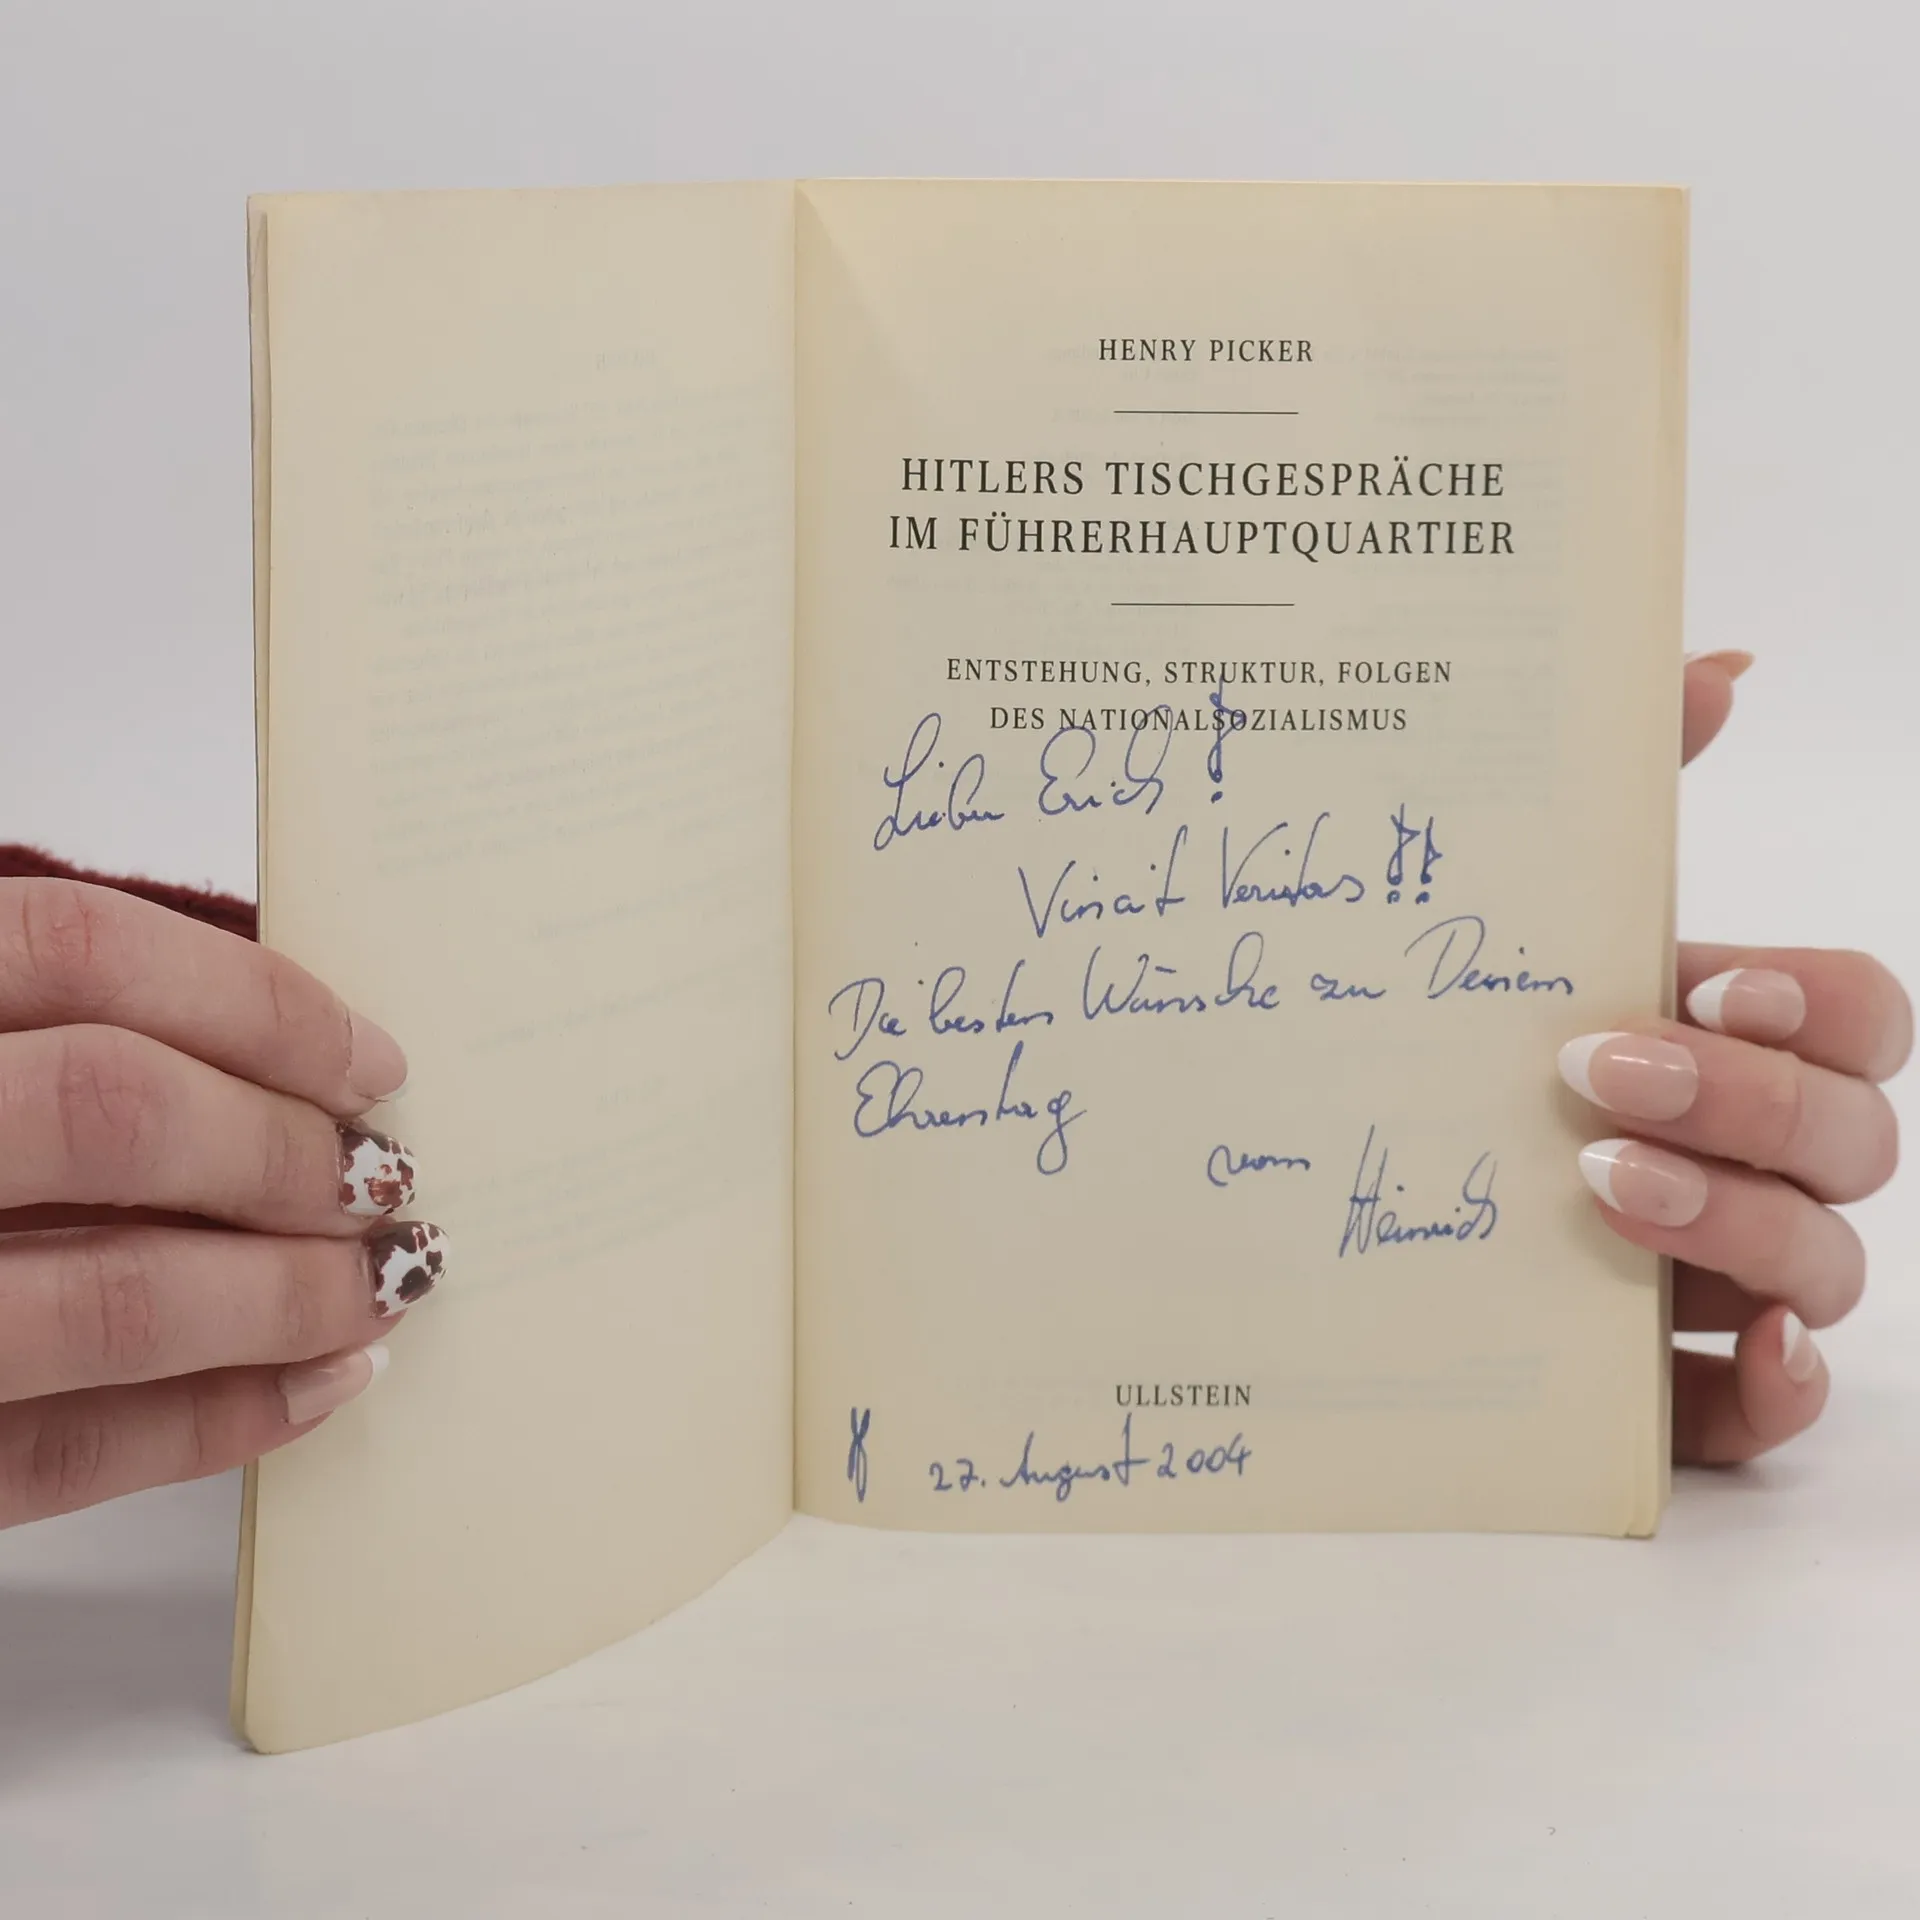 HENRY PICKER
HITLERS TISCHGESPRÄCHE
IM FÜHRERHAUPTQUARTIER
ENTSTEHUNG, STRUKTUR, FOLGEN
DES NATIONALSOZIALISMUS
Lieber Erich!
Vincit Veritas!!
Die besten Wünsche zu Deinem
Ehrentag
vom
Heinrich
ULLSTEIN
27. August 2004